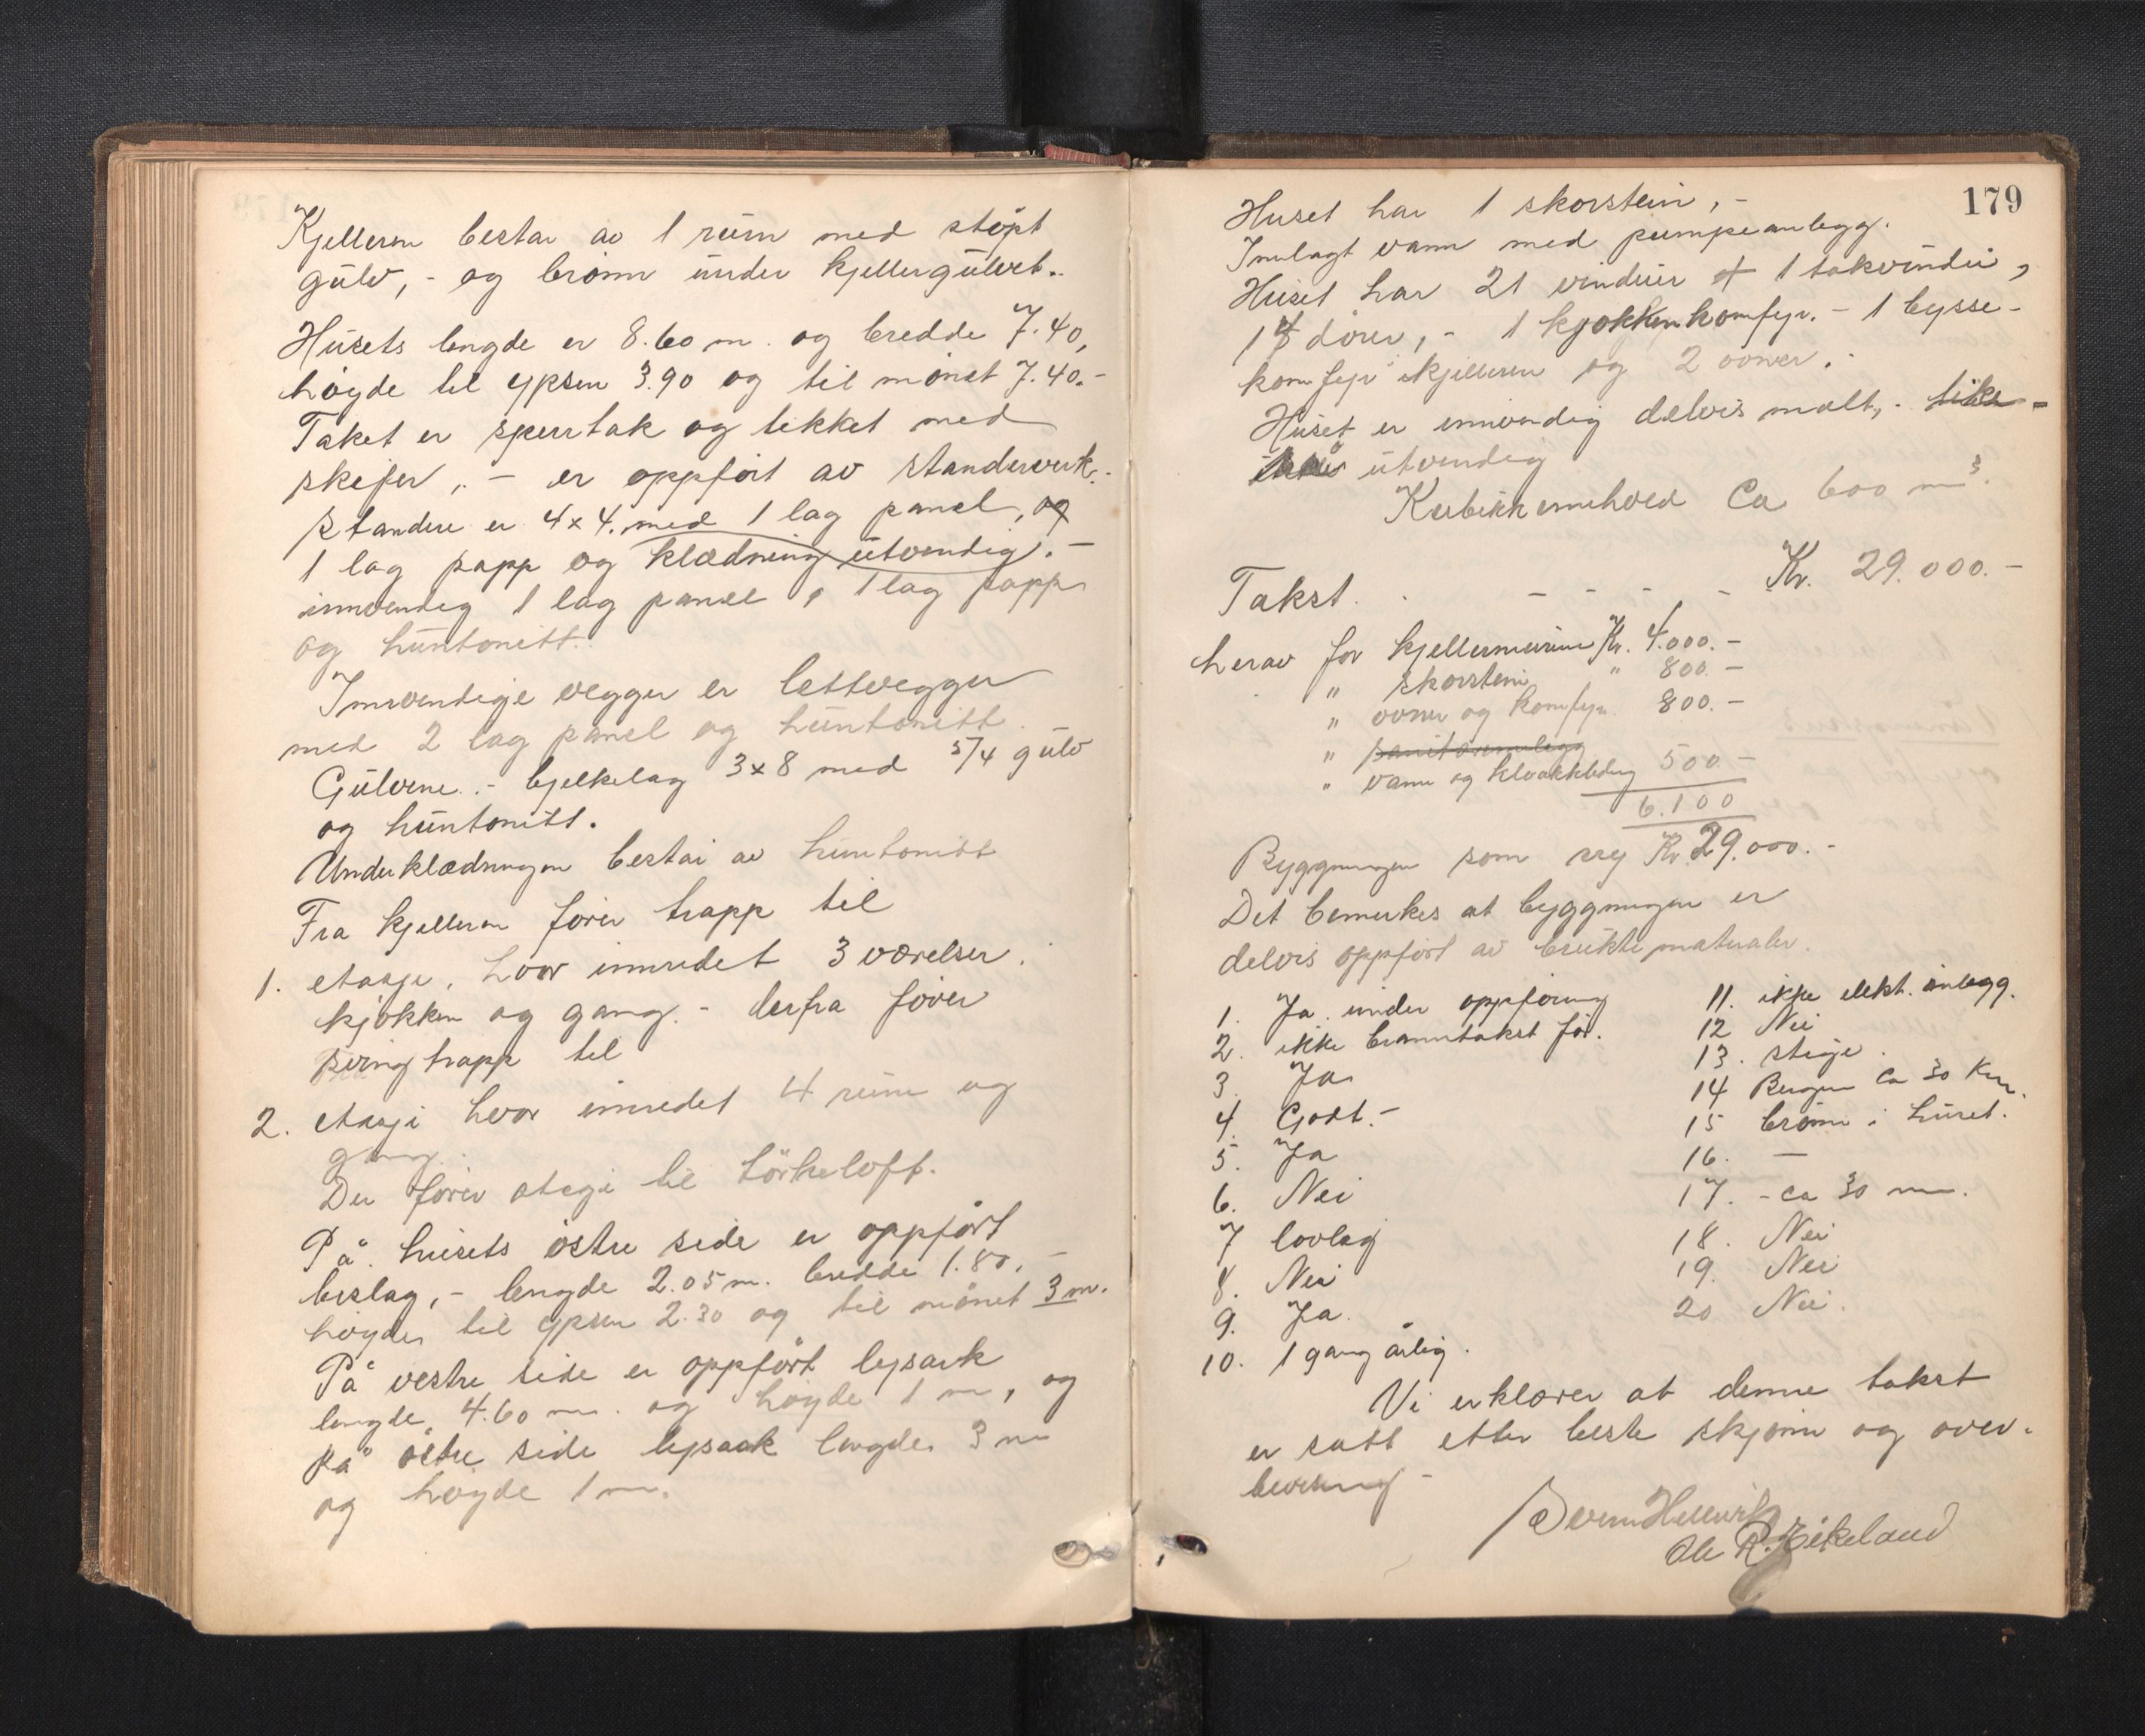 Kjelleren bestar av 1 rum med støpt
gulv, - og brønn under kjellergulvet.
Husets lengde er 8.60 m. og bredde 7.40,
høgde til gpsen 3.90 og til mønet 7.40.-
Taket er sperrtak og tekket med
skifer,. - er oppført av standerverk.-
Standere er 4x4. med 1 lag panel, og
1 lag papp og klædning utvendig. -
innvendig 1 lag panel, 1 lag papp
og huntonitt.
Innvendige vegger er lettvegger
med 2 lag panel og huntonitt.
Gulvene.- bjelkelag 3x8 med 5/4 gulv
og huntonitt.
Underklædningen bestar av huntonitt
Fra kjelleren fører trapp til
1. etasje, hvor innredet 3 værelser.
kjøkken og gang. - derfra fører
svingtrapp til
2. etasje hvor innredet 4 rum og
gang.
Der fører stege til tørkeloft.
På husets østre side er oppført
bislag,- lengde 2.05 m. bredde 1.80, -
høgde til gpsen 2.30 og til mønet 3 m.
På vestre side er oppført lysark
lengde 4.60 m. og høgde 1 m, og
på østre side lysark lengde 3 m
og høgde 1 m.
179
Huset har 1 skorstein, -
Innlagt vann med pumpeanlegg.
Huset har 21 vinduer + 1 takvindu,
14 dører, - 1 kjøkkenkomfyr. - 1 bysse-
komfyr i kjelleren og 2 ovner.
Huset er innvendig delvis malt, - like -
utvendig
Kubikkinnhold Ca 600 m³.
Takst. . - - - - Kr. 29.000.-
herav for kjellermurene Kr. 4.000.-
" skorstein " 800.-
" ovner og komfyr 800.-
" sanitæranlegg
" vann og kloakkledng 500.-
6.100
Byggningen som ny Kr. 29.000.-
Det bemerkes at byggningen er
delvis oppført av brukte materialer.
1. Ja. under oppføring
2. ikke branntakst før.
3. Ja
4. Godt.-
5. Ja
6. Nei
7 lovlag
8. Nei
9. Ja.
10. 1 gang årlig.
11. ikke elekt. anlegg.
12 Nei
13. stige.
14 Bergen ca 30 Km.
15 brønn i huset.
16. -
17. - ca 30 m.
18. Nei
19. Nei
20 Nei.
Vi erklærer at denne takst
er satt etter beste skjønn og over-
bevisning -
Ole R. Eikeland